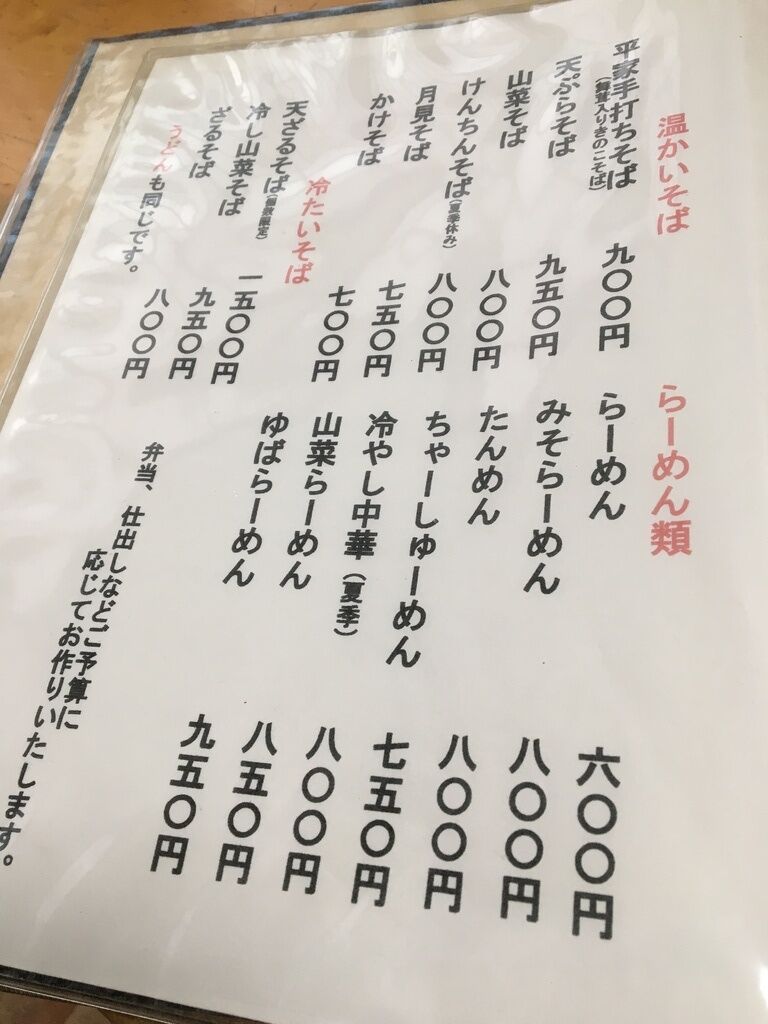 温かいそば
平家手打ちそば 九〇〇円
(舞茸入りきのこそば)
天ぷらそば 九五〇円
山菜そば 八〇〇円
けんちんそば(夏季休み) 八〇〇円
月見そば 七五〇円
かけそば 七〇〇円
冷たいそば
天ざるそば(個数限定) 一五〇〇円
冷し山菜そば 九五〇円
ざるそば 八〇〇円
うどんも同じです。
らーめん類
らーめん 六〇〇円
みそらーめん 八〇〇円
たんめん 八〇〇円
ちゃーしゅーめん 七五〇円
冷やし中華(夏季) 八〇〇円
山菜らーめん 八五〇円
ゆばらーめん 九五〇円
弁当、仕出しなどご予算に
応じてお作りいたします。